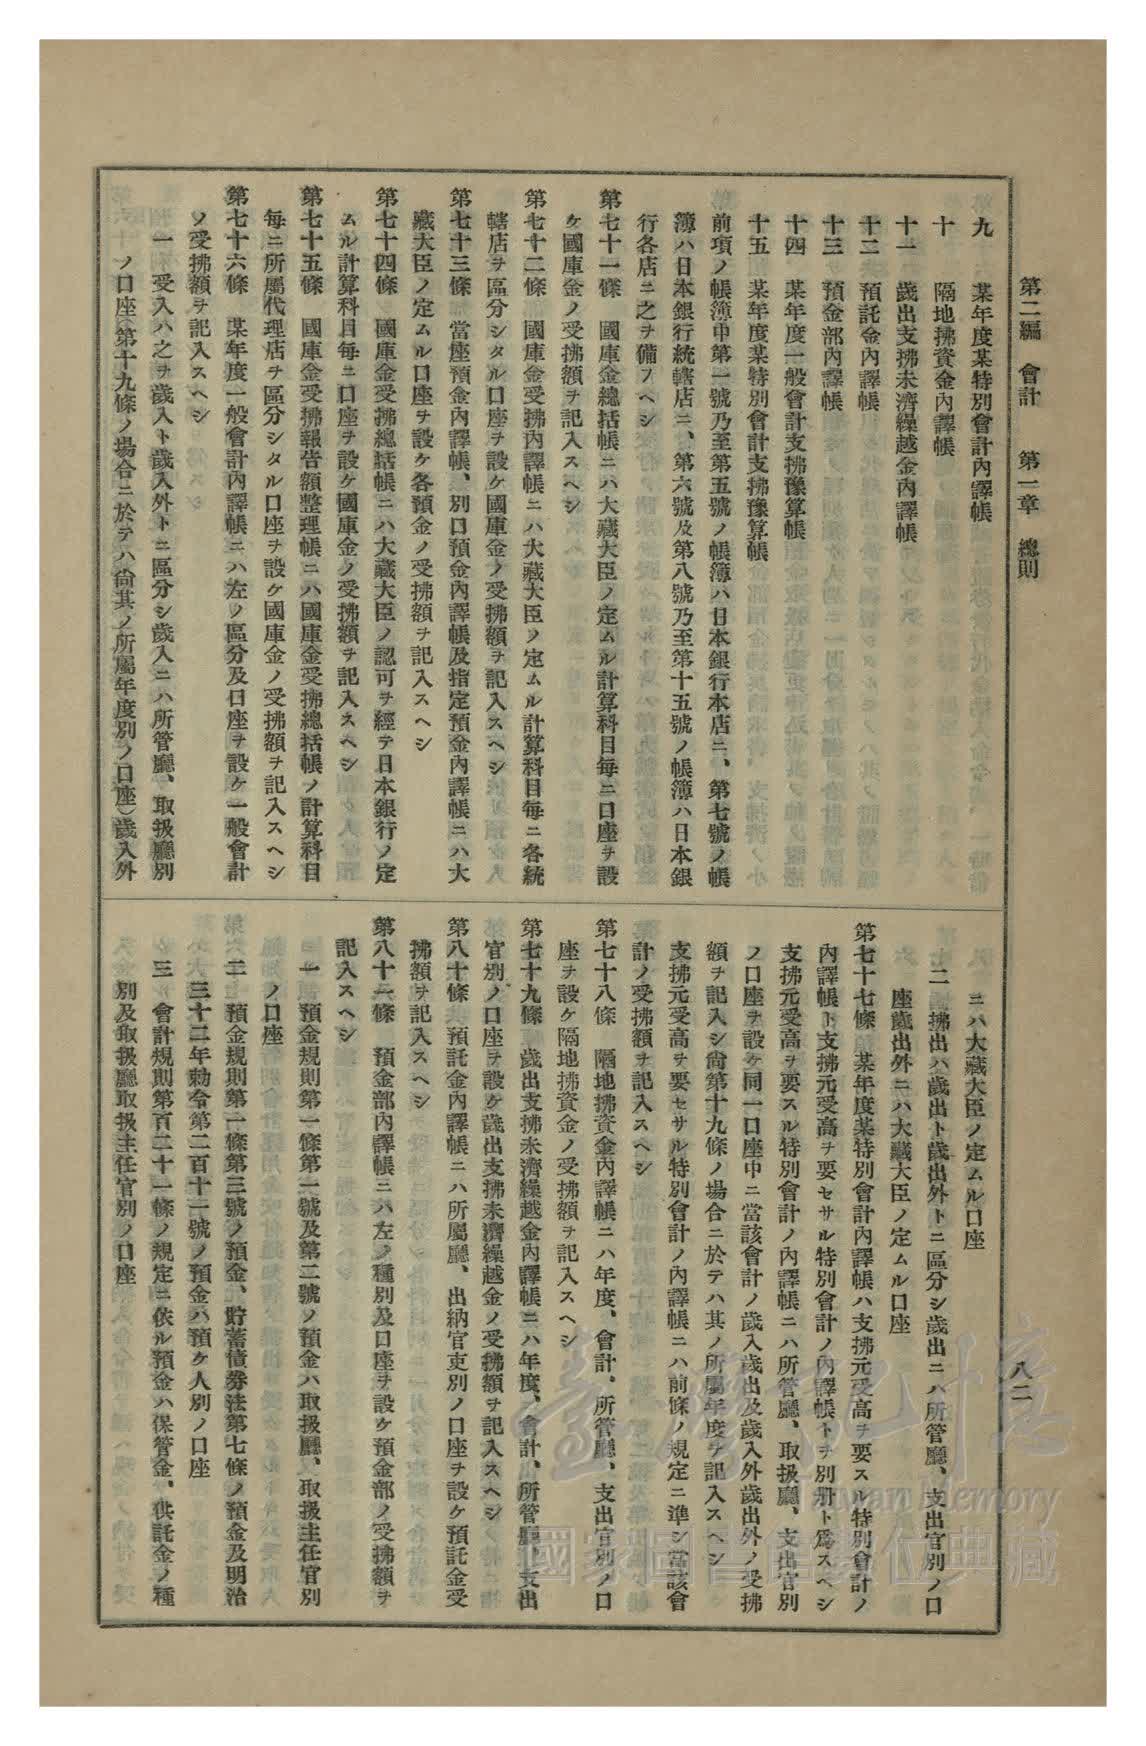 第二編 會計 第一章 總則
八二
九 某年度某特別會計內譯帳
十 隔地拂資金內譯帳
十一 歲出支拂未濟繰越金內譯帳
十二 預託金內譯帳
十三 預金部內譯帳
十四 某年度一般會計支拂豫算帳
十五 某年度某特別會計支拂豫算帳
前項ノ帳簿中第一號乃至第五號ノ帳簿ハ日本銀行本店ニ、第七號ノ帳
簿ハ日本銀行統轄店ニ、第六號及第八號乃至第十五號ノ帳簿ハ日本銀
行各店ニ之ヲ備フヘシ
第七十一條 國庫金總括帳ニハ大藏大臣ノ定ムル計算科目每ニ口座ヲ設
ケ國庫金ノ受拂額ヲ記入スヘシ
第七十二條 國庫金受拂內譯帳ニハ大藏大臣ノ定ムル計算科目每ニ各統
轄店ヲ區分シタル口座ヲ設ケ國庫金ノ受拂額ヲ記入スヘシ
第七十三條 當座預金內譯帳、別口預金內譯帳及指定預金內譯帳ニハ大
藏大臣ノ定ムル口座ヲ設ケ各預金ノ受拂額ヲ記入スヘシ
第七十四條 國庫金受拂總括帳ニハ大藏大臣ノ認可ヲ經テ日本銀行ノ定
ムル計算科目每ニ口座ヲ設ケ國庫金ノ受拂額ヲ記入スヘシ
第七十五條 國庫金受拂報告額整理帳ニハ國庫金受拂總括帳ノ計算科目
每ニ所屬代理店ヲ區分シタル口座ヲ設ケ國庫金ノ受拂額ヲ記入スヘシ
第七十六條 某年度一般會計內譯帳ニハ左ノ區分及口座ヲ設ケ一般會計
ノ受拂額ヲ記入スヘシ
一 受入ハ之ヲ歲入ト歲入外トニ區分シ歲入ニハ所管廳、取扱廳別
ノ口座(第十九條ノ場合ニ於テハ尙其ノ所屬年度別ノ口座)歲入外
ニハ大藏大臣ノ定ムル口座
二 拂出ハ歲出ト歲出外トニ區分シ歲出ニハ所管廳、支出官別ノ口
座歲出外ニハ大藏大臣ノ定ムル口座
第七十七條 某年度某特別會計內譯帳ハ支拂元受高ヲ要スル特別會計ノ
內譯帳ト支拂元受高ヲ要セサル特別會計ノ內譯帳トヲ別册ト爲スヘシ
支拂元受高ヲ要スル特別會計ノ內譯帳ニハ所管廳、取扱廳、支出官別
ノ口座ヲ設ケ同一口座中ニ當該會計ノ歲入歲出及歲入外歲出外ノ受拂
額ヲ記入シ尙第十九條ノ場合ニ於テハ其ノ所屬年度ヲ記入スヘシ
支拂元受高ヲ要セサル特別會計ノ內譯帳ニハ前條ノ規定ニ準シ當該會
計ノ受拂額ヲ記入スヘシ
第七十八條 隔地拂資金內譯帳ニハ年度、會計、所管廳、支出官別ノ口
座ヲ設ケ隔地拂資金ノ受拂額ヲ記入スヘシ
第七十九條 歲出支拂未濟繰越金內譯帳ニハ年度、會計、所管廳、支出
官別ノ口座ヲ設ケ歲出支拂未濟繰越金ノ受拂額ヲ記入スヘシ
第八十條 預託金內譯帳ニハ所屬廳、出納官吏別ノ口座ヲ設ケ預託金受
拂額ヲ記入スヘシ
第八十一條 預金部內譯帳ニハ左ノ種別及口座ヲ設ケ預金部ノ受拂額ヲ
記入スヘシ
一 預金規則第一條第一號及第二號ノ預金ハ取扱廳、取扱主任官別
ノ口座
二 預金規則第一條第三號ノ預金、貯蓄債券法第七條ノ預金及明治
三十二年勅令第二百十一號ノ預金ハ預ケ人別ノ口座
三 會計規則第百二十一條ノ規定ニ依ル預金ハ保管金、供託金ノ種
別及取扱廳取扱主任官別ノ口座
臺灣記憶
Taiwan Memory
國家圖書館數位典藏